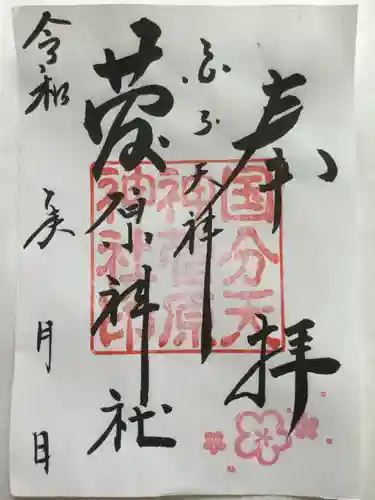 奉拝
天神
菅原神社
令和 年 月 日
国分天
神菅原
神社印